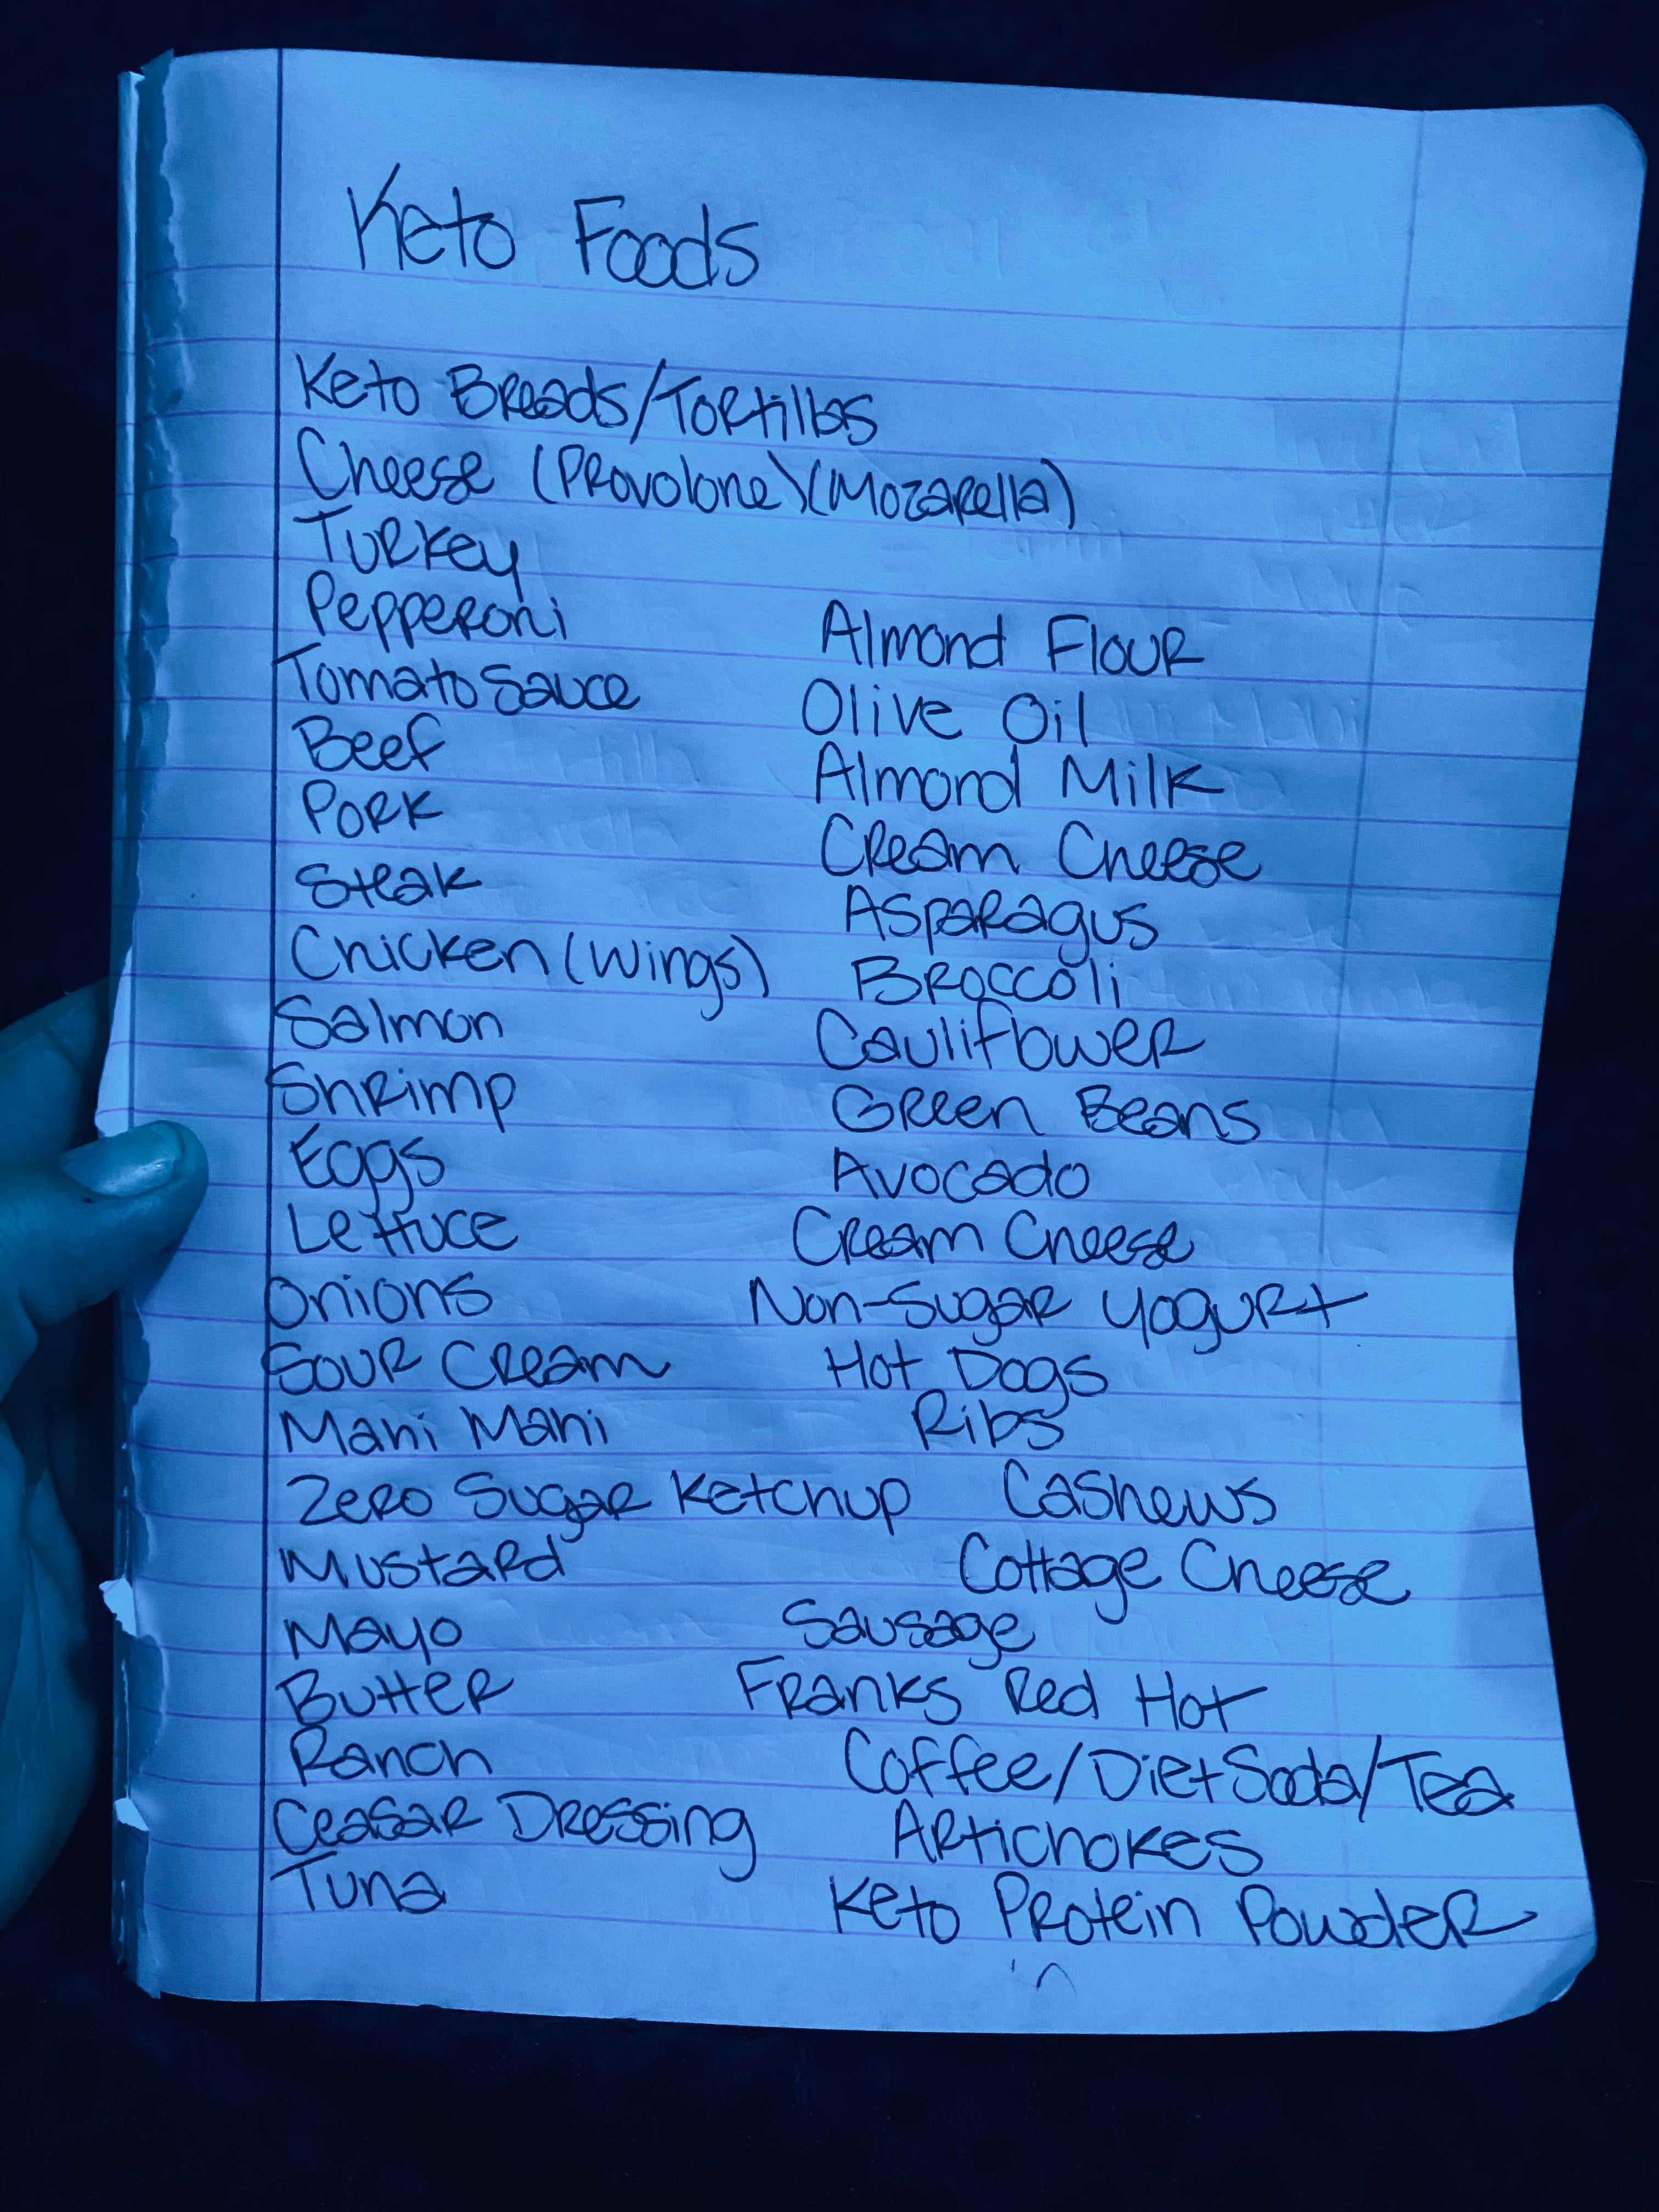 Keto Foods
Keto Breads/Tortillas
Cheese (Provolone)(Mozarella)
Turkey
Pepperoni
Tomato Sauce
Beef
Pork
Steak
Chicken (Wings)
Salmon
Shrimp
Eggs
Lettuce
Onions
Sour Cream
Mahi Mahi
Zero Sugar Ketchup
Mustard
Mayo
Butter
Ranch
Ceasar Dressing
Tuna
Almond Flour
Olive Oil
Almond Milk
Cream Cheese
Asparagus
Broccoli
Cauliflower
Green Beans
Avocado
Cream Cheese
Non-Sugar Yogurt
Hot Dogs
Ribs
Cashews
Cottage Cheese
Sausage
Franks Red Hot
Coffee/Diet Soda/Tea
Artichokes
Keto Protein Powder